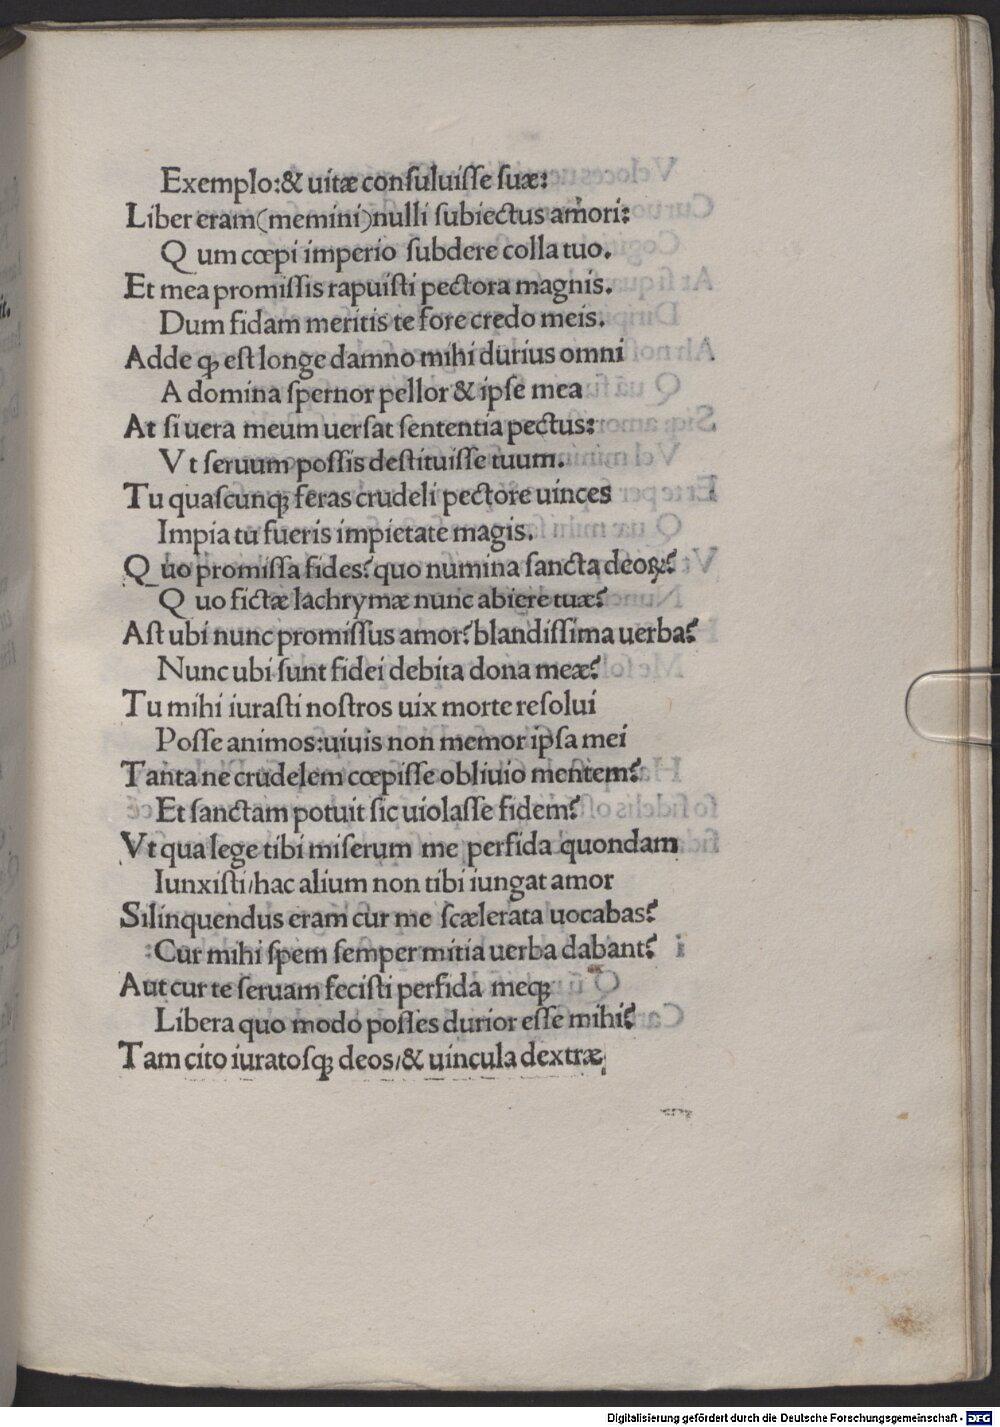 Exemplo:& uitæ conſuluiſſe ſuæ:
Liber eram(memini)nulli ſubiectus amori:
Q um cœpi imperio ſubdere colla tuo.
Et mea promiſſis rapuiſti pectora magnis.
Dum fidam meritis te fore credo meis.
Adde ꝙ eſt longe damno mihi durius omni
A domina ſpernor pellor & ipſe mea
At ſi uera meum uerſat ſententia pectus:
V t ſeruum poſſis deſtituiſſe tuum.
Tu quaſcunqꝫ feras crudeli pectore uinces
Impia tu fueris impietate magis.
Q uo promiſſa fides? quo numina ſancta deoꝝ?
Q uo fictæ lachrymæ nunc abiere tuæ?
Aſt ubi nunc promiſſus amor? blandiſſima uerba?
Nunc ubi ſunt fidei debita dona meæ?
Tu mihi iuraſti noſtros uix morte reſolui
Poſſe animos:uiuis non memor ipſa mei
Tanta ne crudelem cœpiſſe obliuio mentem?
Et ſanctam potuit ſic uiolaſſe fidem?
Vt qua lege tibi miſerum me perfida quondam
Iunxiſti/hac alium non tibi iungat amor
Si linquendus eram cur me ſcælerata uocabas?
Cur mihi ſpem ſemper mitia uerba dabant?
Aut cur te ſeruam feciſti perfida meqꝫ
Libera quo modo poſſes durior eſſe mihi?
Tam cito iuratoſqꝫ deos/& uincula dextræ
Digitalisierung gefördert durch die Deutsche Forschungsgemeinschaft - DFG